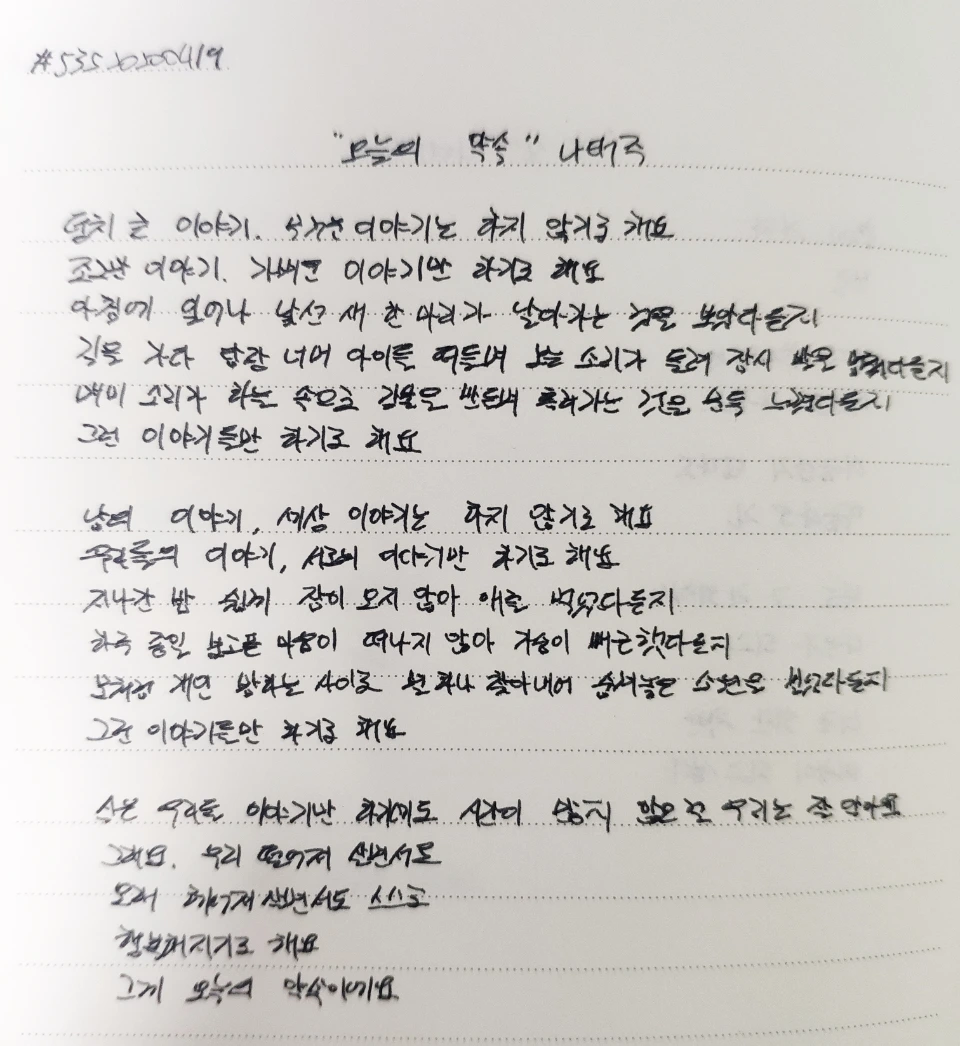 #535 20200419
"오늘의 약속" 나태주
덩치 큰 이야기, 무거운 이야기는 하지 않기로 해요
조그만 이야기, 가벼운 이야기만 하기로 해요
아침에 일어나 낯선 새 한 마리가 날아가는 것을 보았다든지
길을 가다 담장 너머 아이들 떠들며 노는 소리가 들려 잠시 발을 멈췄다든지
매미 소리가 하늘 속으로 강물을 만들며 흘러가는 것을 문득 느꼈다든지
그런 이야기들만 하기로 해요
남의 이야기, 세상 이야기는 하지 않기로 해요
우리들의 이야기, 서로의 이야기만 하기로 해요
지나간 밤 쉽게 잠이 오지 않아 애를 먹었다든지
하루 종일 보고픈 마음이 떠나지 않아 가슴이 뻐근했다든지
모처럼 개인 밤하늘 사이로 별 하나 찾아내어 숨겨놓은 소원을 빌었다든지
그런 이야기들만 하기로 해요
실은 우리들 이야기만 하기에도 시간이 많지 않은 걸 우리는 잘 알아요
그래요, 우리 떨어져 살면서도
오래 헤어져 살면서도 스스로
행복해지기로 해요
그게 오늘의 약속이에요